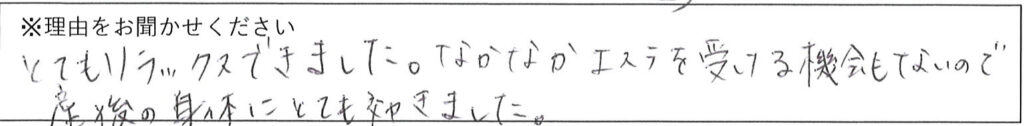 ※理由をお聞かせください
とてもリラックスできました。なかなかエステを受ける機会もないので
産後の身体にとても効きました。